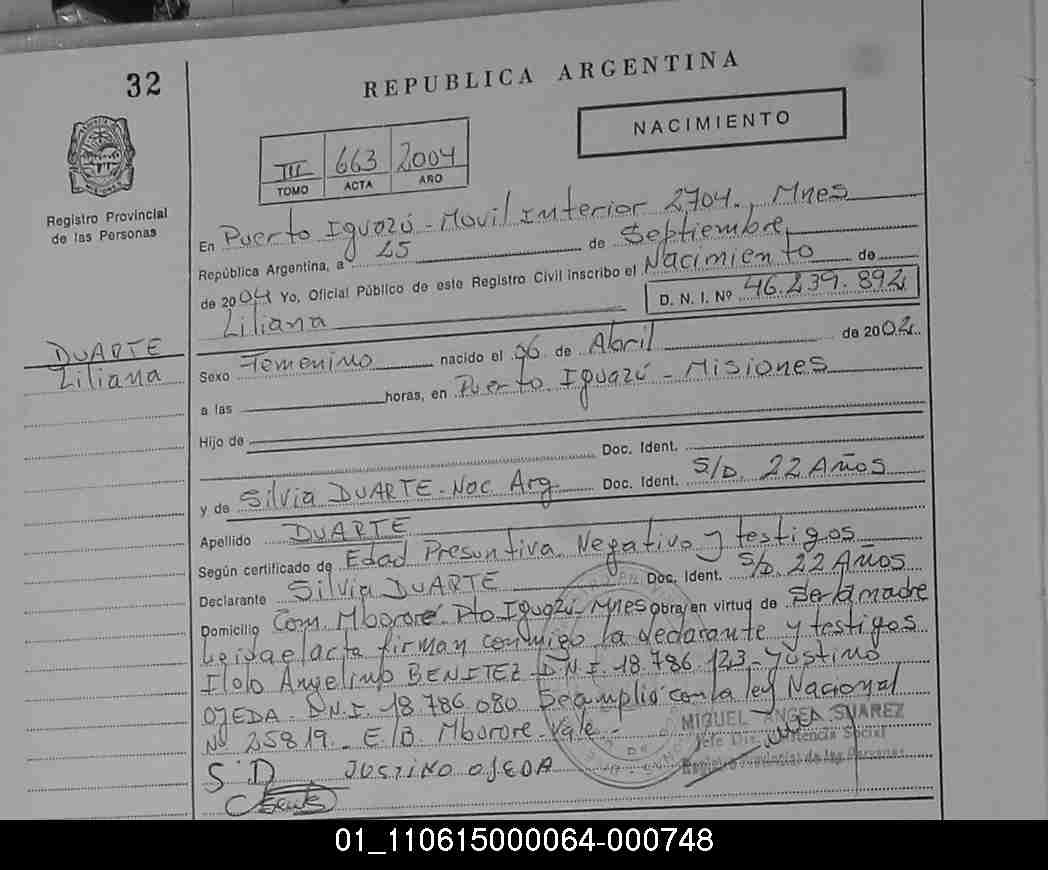 32
REPUBLICA ARGENTINA
NACIMIENTO
III 663 2004
TOMO ACTA AÑO
Registro Provincial
de las Personas
En Puerto Iguazú - Movil Interior 2704., Mnes
República Argentina, a 25 de Septiembre
de 2004 Yo, Oficial Público de este Registro Civil inscribo el Nacimiento de
Liliana D. N. I. Nº 46.239.892
DUARTE
Liliana
Sexo Femenino nacido el 06 de Abril de 2002
a las horas, en Puerto Iguazú - Misiones
Hijo de
Doc. Ident.
y de Silvia DUARTE - Nac Arg. Doc. Ident. S/D. 22 Años
Apellido DUARTE
Según certificado de Edad Presuntiva Negativo y testigos
Declarante Silvia DUARTE Doc. Ident. S/D. 22 Años
Domicilio Com. Mbororé Pto Iguazú - Mnes obra en virtud de Ser la madre
Leida el acta firman conmigo la declarante y testigos
Ilolo Angelino BENITEZ - D.N.I. 18.786.123 - Justino
OJEDA - D.N.I. 18.786.080 Se amplió con la ley Nacional
Nº 25819 - E/B. Mbororé - Vale -
MIGUEL ANGEL SUAREZ
Jefe Div. Asistencia Social
Registro Provincial de las Personas
S D JUSTINO OJEDA
01_110615000064-000748